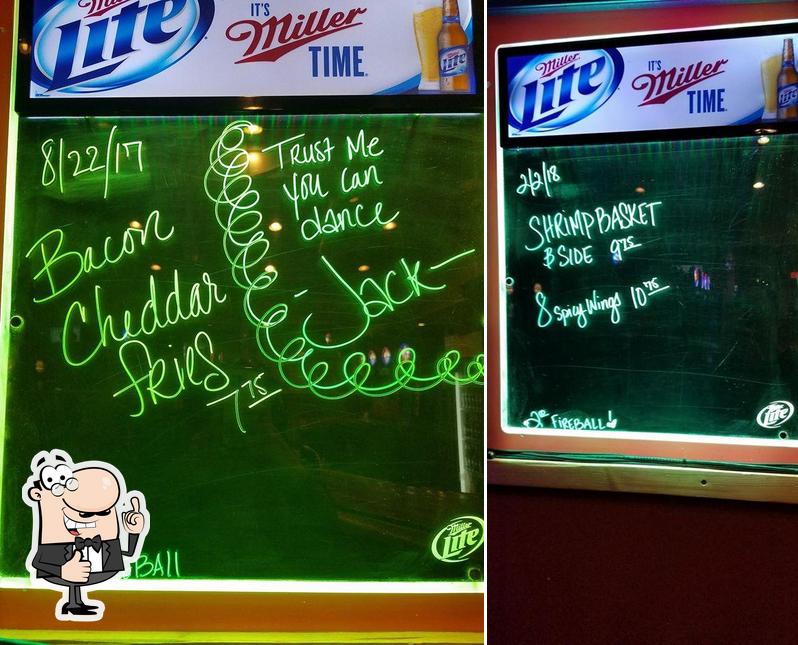 Miller
Lite
IT'S
Miller
TIME
8/22/17
Trust Me
you can
dance
-Jack-
Bacon
Cheddar
Fries
7.75
BALL
Miller
Lite
Miller
Lite
IT'S
Miller
TIME
2/2/18
SHRIMP BASKET
$ SIDE 9.75
8 Spicy Wings 10.75
FIREBALL!
Lite